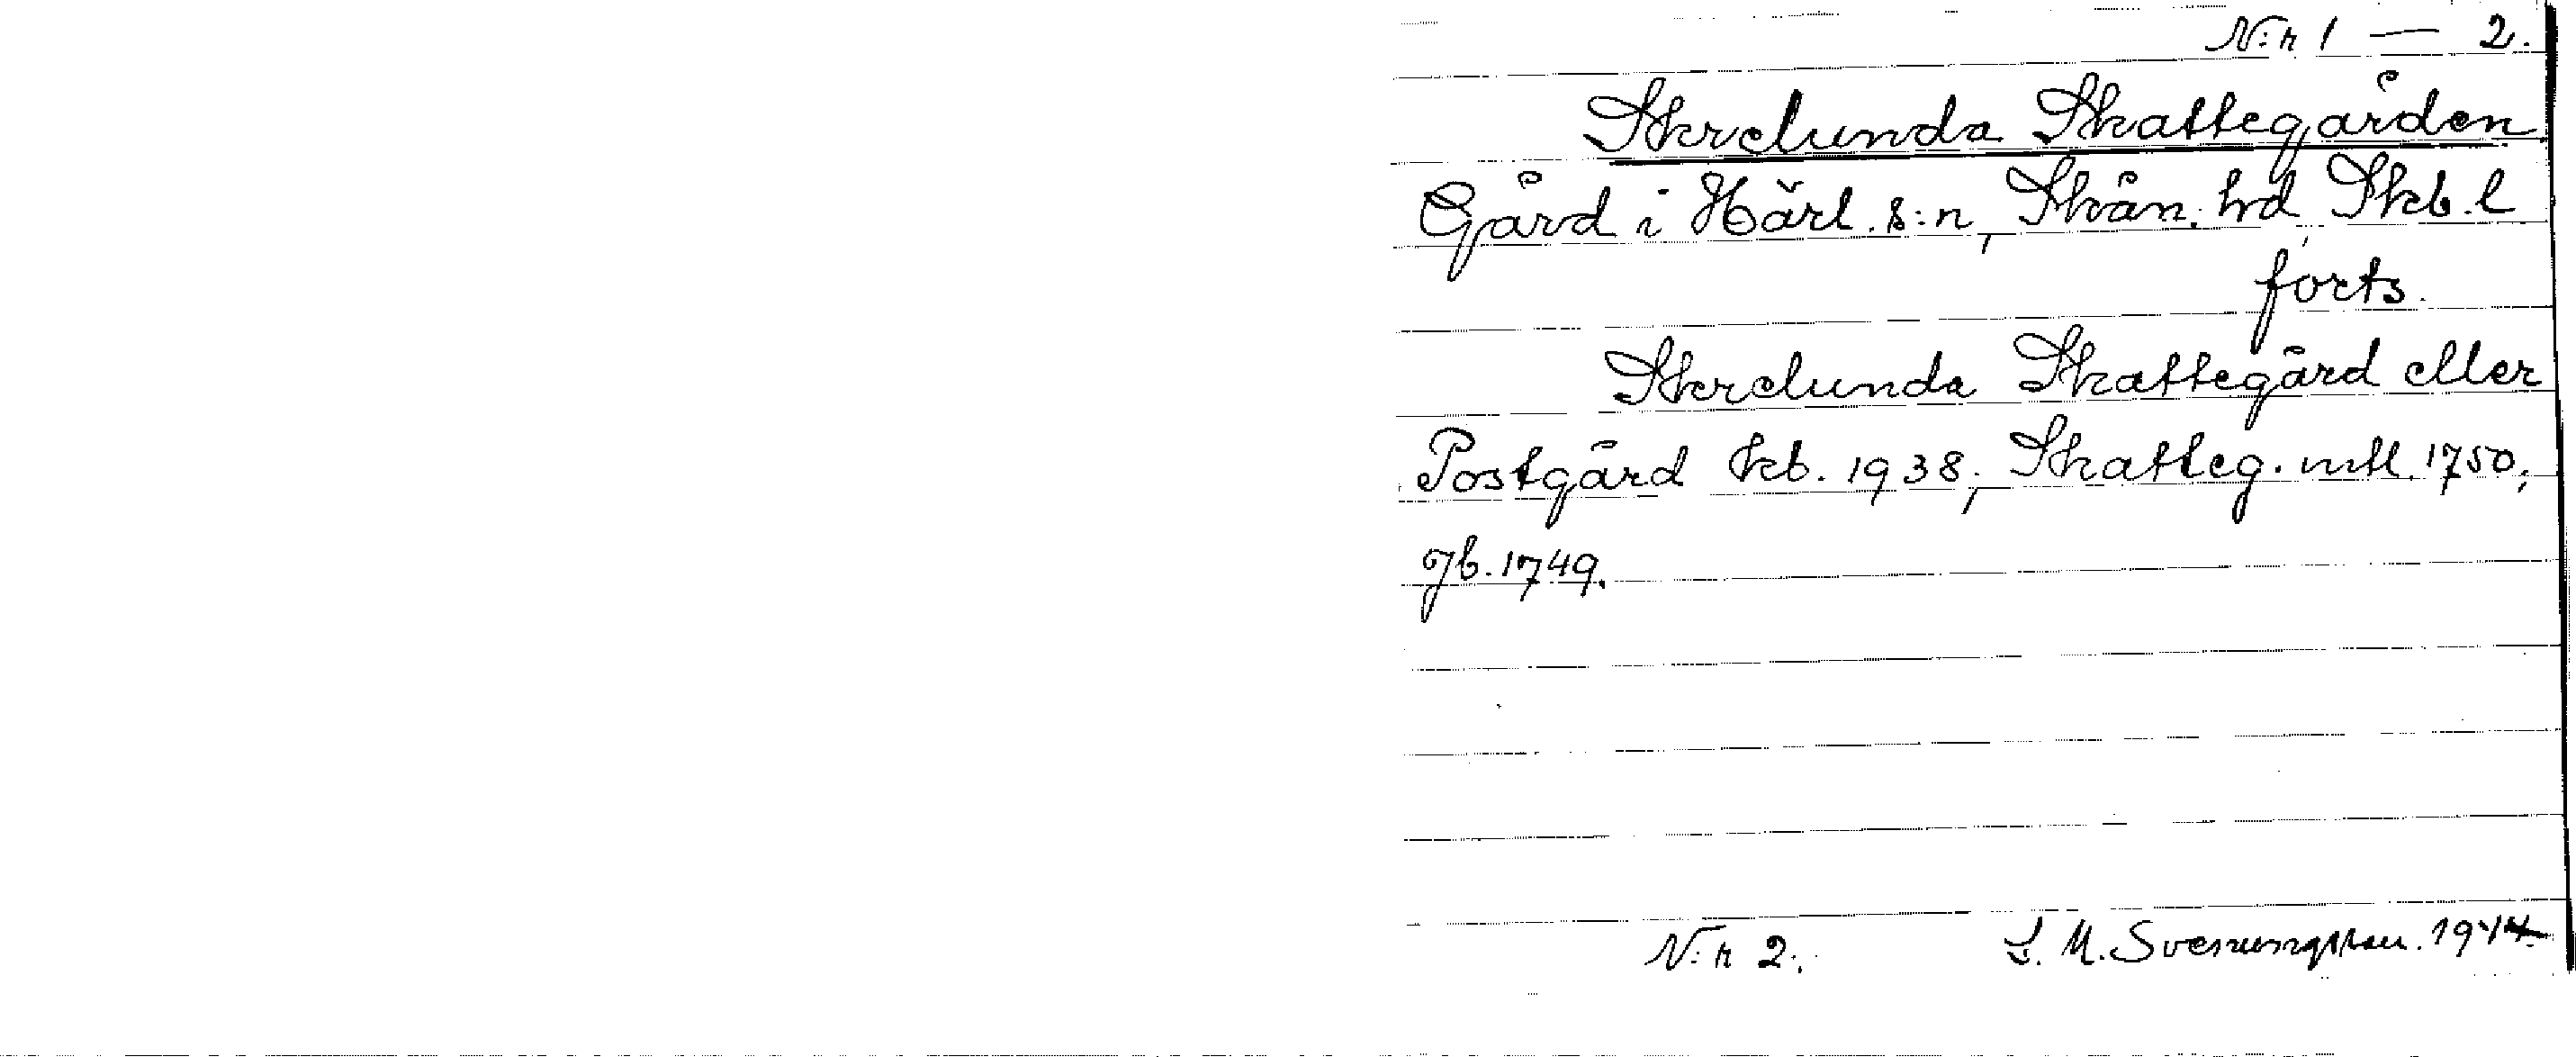 N:r 1 — 2.
Skrelunda Skattegården
Gård i Härl. s:n, Skån. hd, Skb. l
forts.
Skrelunda Skattegård eller
Postgård kb. 1938; Skatteg. mtl. 1750;
Jb. 1749.
N:r 2. S. M. Svenungsson. 1944.